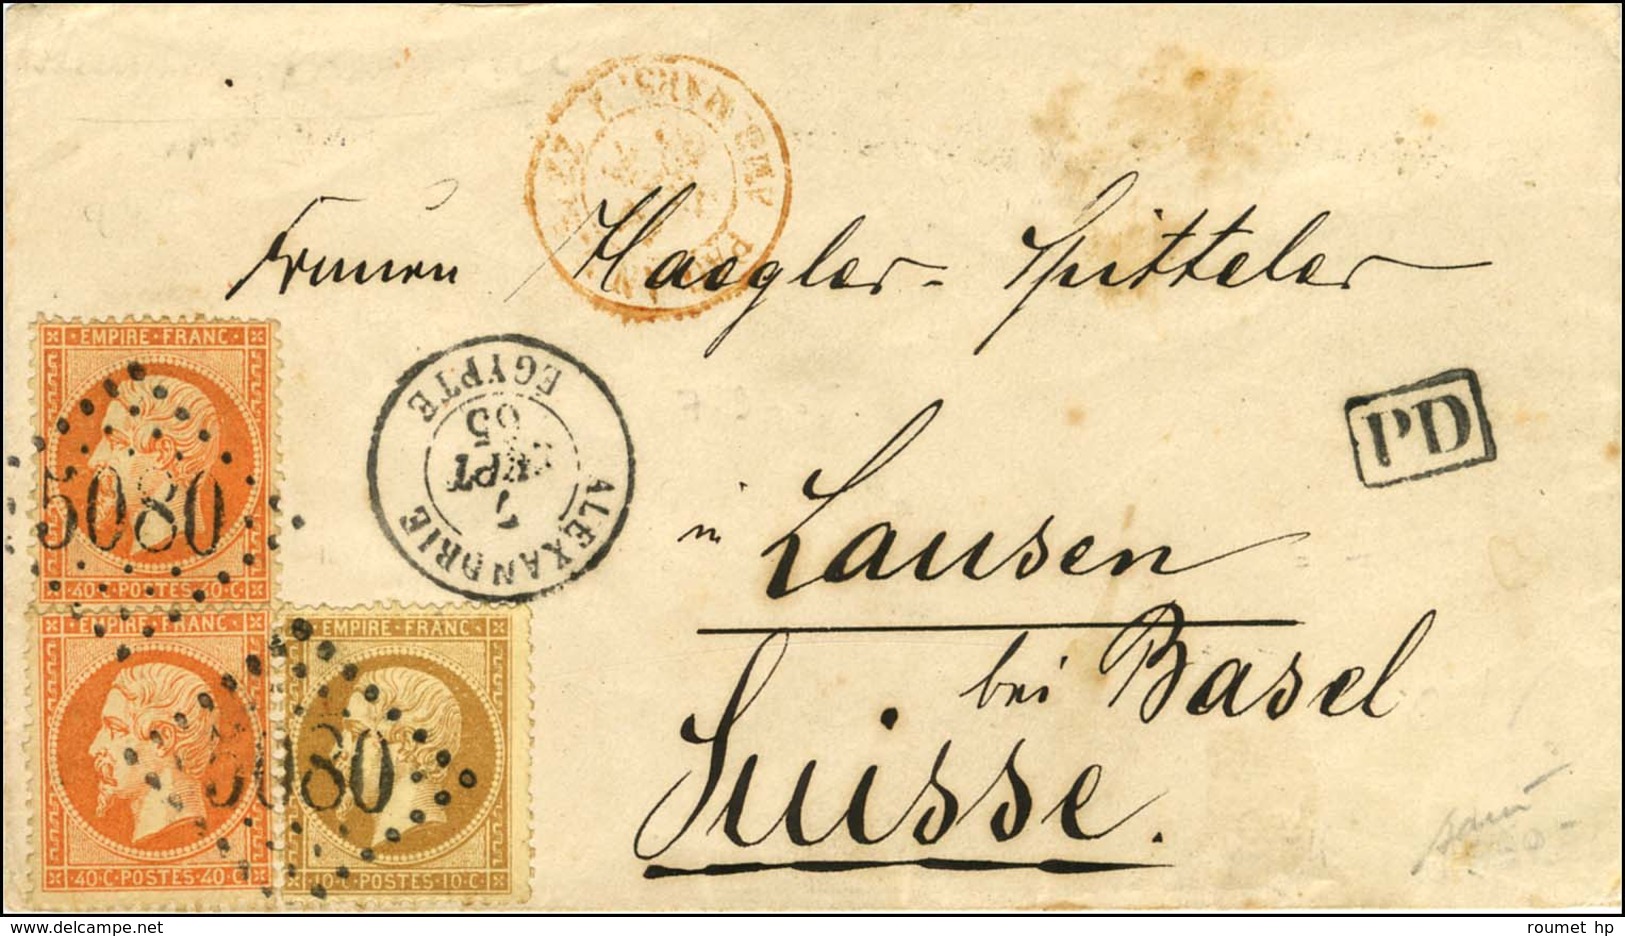 Frauen Haegler-Spitteler
in Lausen
bei Basel
Suisse.
PD
ALEXANDRIE
SEPT
65
EGYPTE
EMPIRE·FRANC
5080
40·C·POSTES·40·C
EMPIRE·FRANC
40·C·POSTES·40·C
EMPIRE·FRANC
5080
10·C·POSTES·10·C
roumet hp